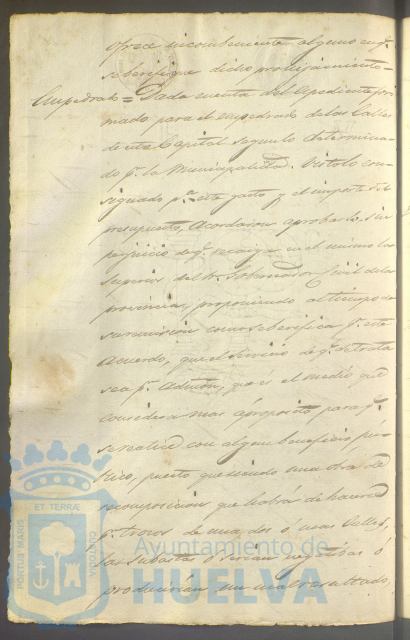 ofrece inconbeniente alguno en q.e
se berifique dicho prohijamiento =
Empedrado = Dada cuenta del Expediente for
mado para el empedrado de las Calles
de esta Capital segun lo determina
do p.r la Municipalidad. Visto lo con
signado p.a este gasto y el importe del
presupuesto, Acordaron aprobarlo, sin
perjuicio de q.e recaiga en el mismo la
superior del S.r Gobernador Civil de la
provincia, proponiendo al tiempo de
su remision como se berifica p.r este
Acuerdo, que el servicio de q.e se trata
sea p.r Admon, que és el medio que
considera mas áproposito para q.e
se realice con algun beneficio pú
blico, puesto que siendo una obra de
recomposicion que habrá de hacerse
p.r trozos de una dos ó mas Calles,
las Subastas ó serian negatibas ó
producirian un mal resultado,
PORTUS MARIS
ET TERRÆ
CUSTODIA
Ayuntamiento de
HUELVA